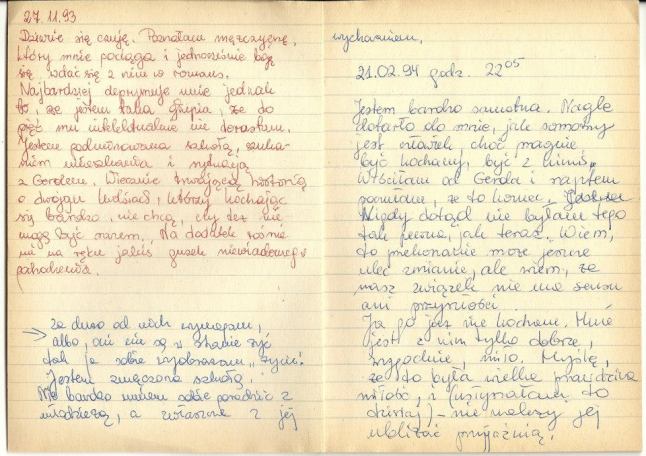 27.11.93
Dziwnie się czuję. Poznałam mężczyznę,
który mnie pociąga i jednocześnie boję
się wdać się z nim w romans.
Najbardziej deprymuje mnie jednak
to, że jestem taka głupia, że do
pięt mu intelektualnie nie dorastam.
Jestem podminowana szkołą, szuka-
niem mieszkania i sytuacją
z Geroldem. Wiecznie trwającą historią
o dwojgu ludziach, którzy kochając
się bardzo, nie chcą, czy też nie
mogą być razem. Na dodatek rośnie
mi na ręku jakiś guzek niewiadomego
pochodzenia.
→ za dużo od nich wymagam,
albo oni nie są w stanie żyć
tak ja sobie wyobrażam „życie".
Jestem zmęczona szkołą.
Nie bardzo umiem sobie poradzić z
młodzieżą, a zwłaszcza z jej
wychowaniem.
21.02.94 godz. 22 05
Jestem bardzo samotna. Nagle
dotarło do mnie, jak samotny
jest człowiek, choć pragnie
być kochany, być z kimś.
Wróciłam od Gerolda i nagle
że to koniec.
Nigdy dotąd nie byłam tego
tak pewna, jak teraz. Wiem,
to przekonanie może jeszcze
ulec zmianie, ale wiem, że
nasz związek nie ma sensu
ani przyszłości.
Ja go już nie kocham. Mnie
jest z nim tylko dobrze,
wygodnie, miło. Myślę,
że to była wielka prawdziwa
miłość, i (wspominałam to
dzisiaj) – nie należy jej
ubliżać przyjaźnią.